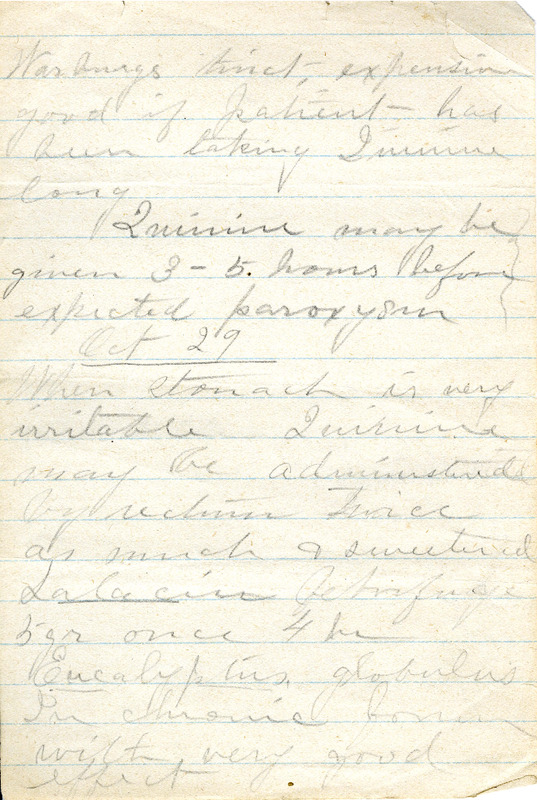 Warburgs tinct, expensive
good if patient has
been taking Quinine
long
Quinine may be
given 3-5. hours before
expected paroxysm
Oct 29
When stomach is very
irritable Quinine
may be administered
by rectum Twice
as much & sweetened
febrifuge
5gr once 4 hr
Eucalyptus globulus
In chronic forms
with very good
effect